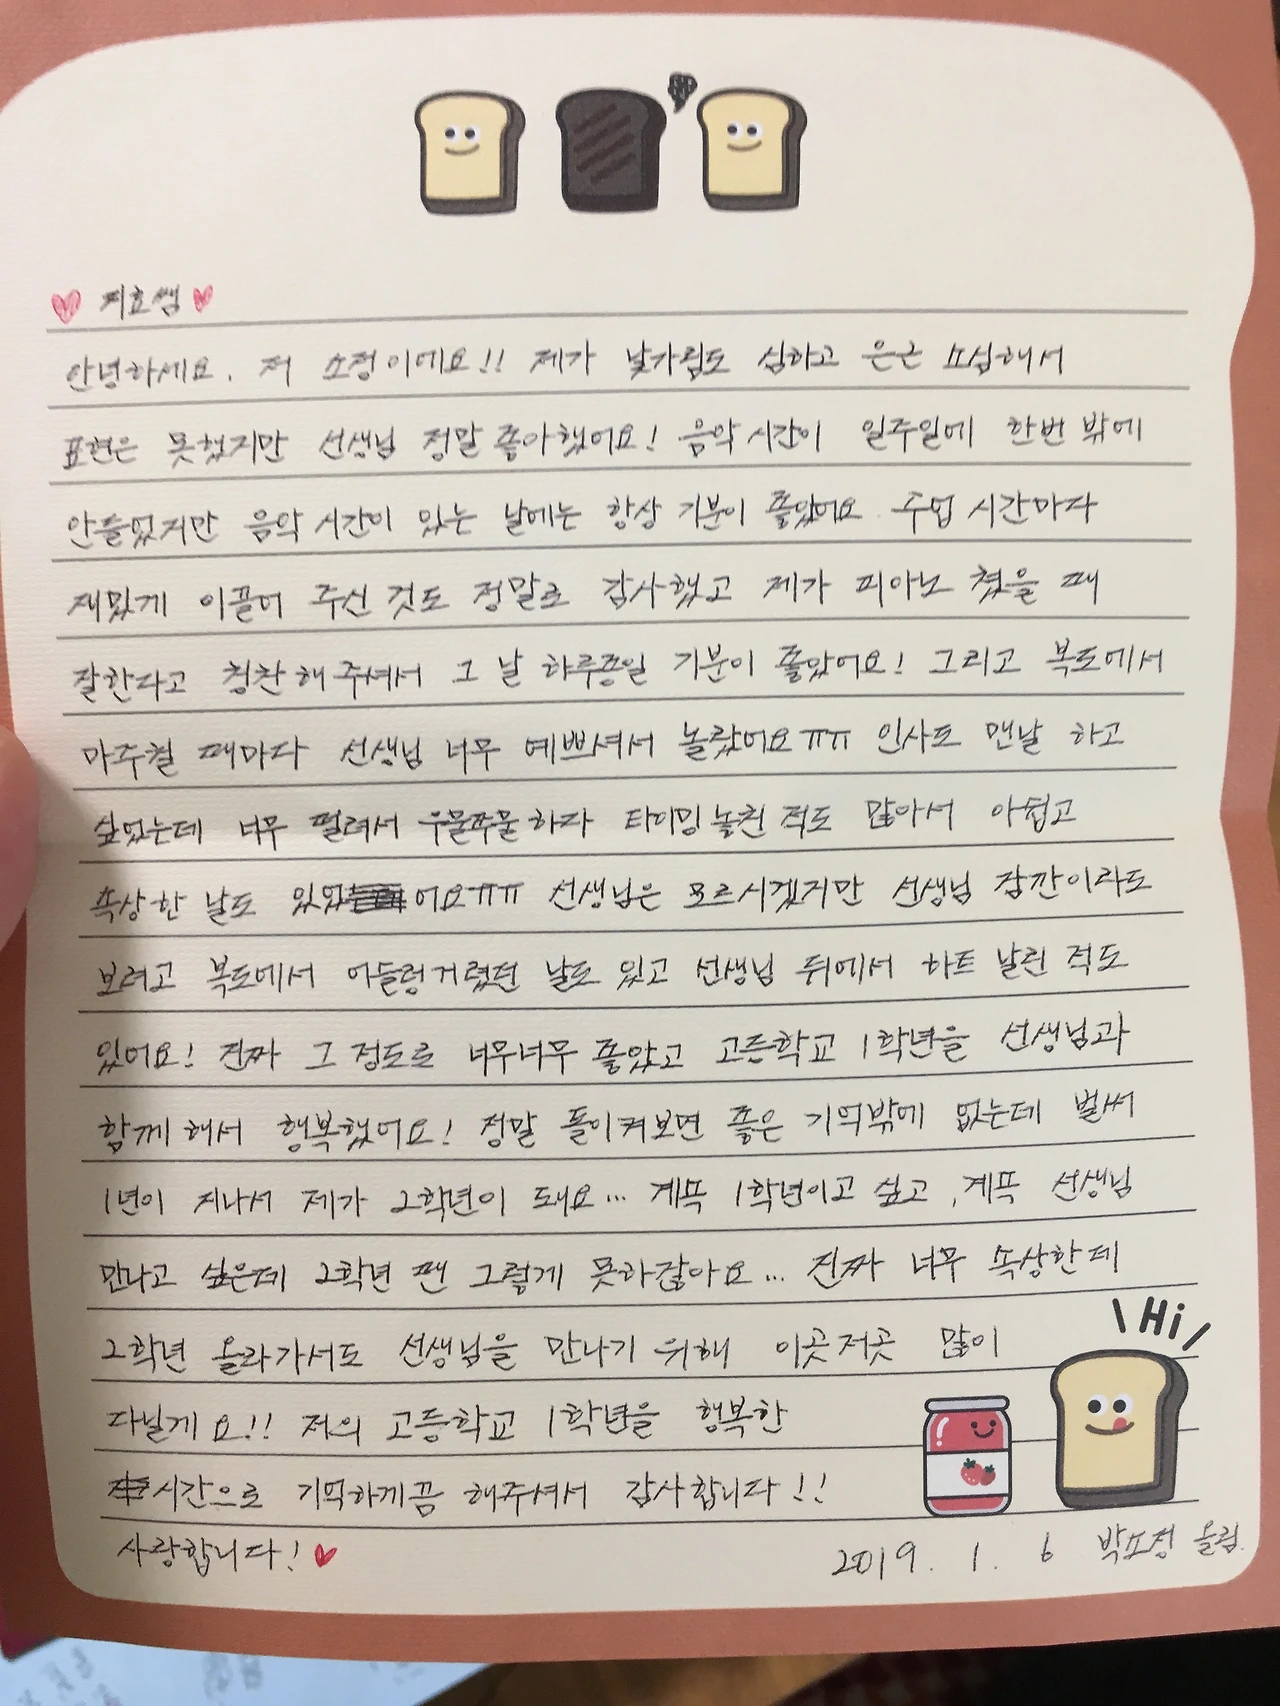 ♥ 지효쌤 ♥
안녕하세요. 저 소정이에요!! 제가 낯가림도 심하고 은근 소심해서
표현은 못했지만 선생님 정말 좋아했어요! 음악시간이 일주일에 한번 밖에
안들었지만 음악시간이 있는 날에는 항상 기분이 좋았어요. 수업 시간마다
재밌게 이끌어 주신 것도 정말로 감사했고 제가 피아노 쳤을 때
잘한다고 칭찬해주셔서 그 날 하루종일 기분이 좋았어요! 그리고 복도에서
마주칠 때마다 선생님 너무 예쁘셔서 놀랐어요ㅠㅠ 인사도 맨날 하고
싶었는데 너무 떨려서 우물쭈물하다 타이밍 놓친 적도 많아서 아쉽고
속상한 날도 있었어요ㅠㅠ 선생님은 모르시겠지만 선생님 잠깐이라도
보려고 복도에서 어슬렁거렸던 날도 있고 선생님 뒤에서 하트 날린 적도
있어요! 진짜 그 정도로 너무너무 좋았고 고등학교 1학년을 선생님과
함께해서 행복했어요! 정말 돌이켜보면 좋은 기억밖에 없는데 벌써
1년이 지나서 제가 2학년이 돼요... 계속 1학년이고 싶고, 계속 선생님
만나고 싶은데 2학년 땐 그렇게 못하잖아요... 진짜 너무 속상한데
2학년 올라가서도 선생님을 만나기 위해 이곳저곳 많이
다닐게요!! 저의 고등학교 1학년을 행복한
시간으로 기억하게끔 해주셔서 감사합니다!!
사랑합니다! ♥
2019. 1. 6 박소정 올림.
Hi